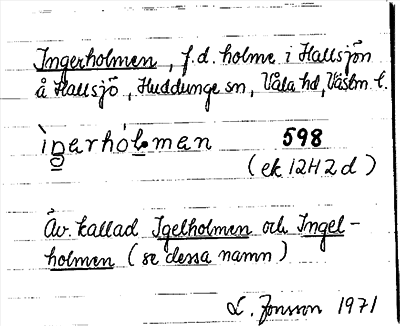 Ingerholmen, f.d. holme i Hallsjön
å Hallsjö, Huddunge sn, Våla hd, Västm. l.
ìŋerhólman 598
(ek 12H2d)
Äv. kallad Igelholmen och Ingel-
holmen (se dessa namn)
L. Jonsson 1971